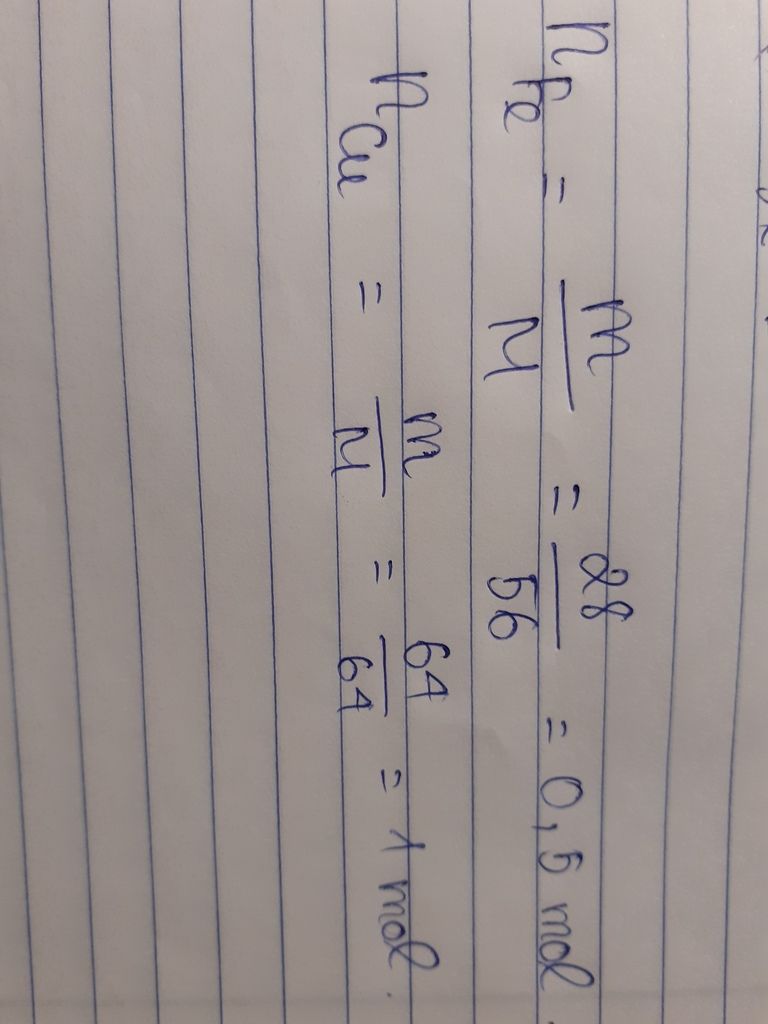 n Fe = m/M = 28/56 = 0,5 mol.
n Cu = m/M = 64/64 = 1 mol.